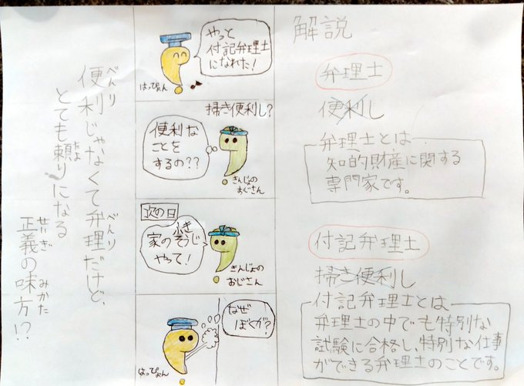 べんり
便利じゃなくて弁理だけど、
べんり
とても頼りになる
たよ
正義の味方!?
せいぎ
みかた
やっと
付記弁理士
になれた!
はっぴょん
掃き便利し?
便利な
ことを
するの??
きんじょの
おくさん
次の日
ふき
家のそうじ
やって!
きんじょの
おじさん
なぜ
ぼくが?
はっぴょん
解説
弁理士
便利し
弁理士とは
知的財産に関する
専門家です。
付記弁理士
掃き便利し
付記弁理士とは
弁理士の中でも特別な
試験に合格し、特別な仕事
ができる弁理士のことです。